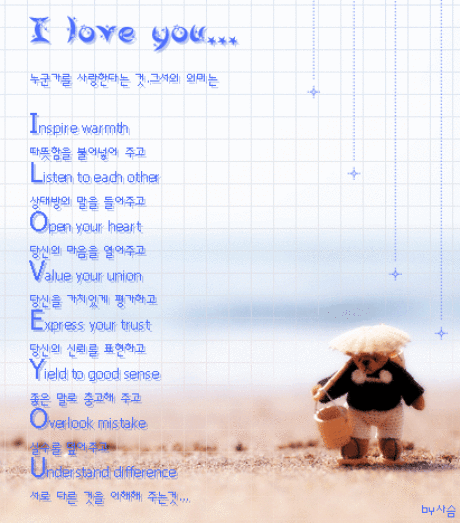 I love you...
누군가를 사랑한다는 것.그것의 의미는
Inspire warmth
따뜻함을 불어넣어 주고
Listen to each other
상대방의 말을 들어주고
Open your heart
당신의 마음을 열어주고
Value your union
당신을 가치있게 평가하고
Express your trust
당신의 신뢰를 표현하고
Yield to good sense
좋은 말로 충고해 주고
Overlook mistake
실수를 덮어주고
Understand difference
서로 다른 것을 이해해 주는것,,,
by사슴